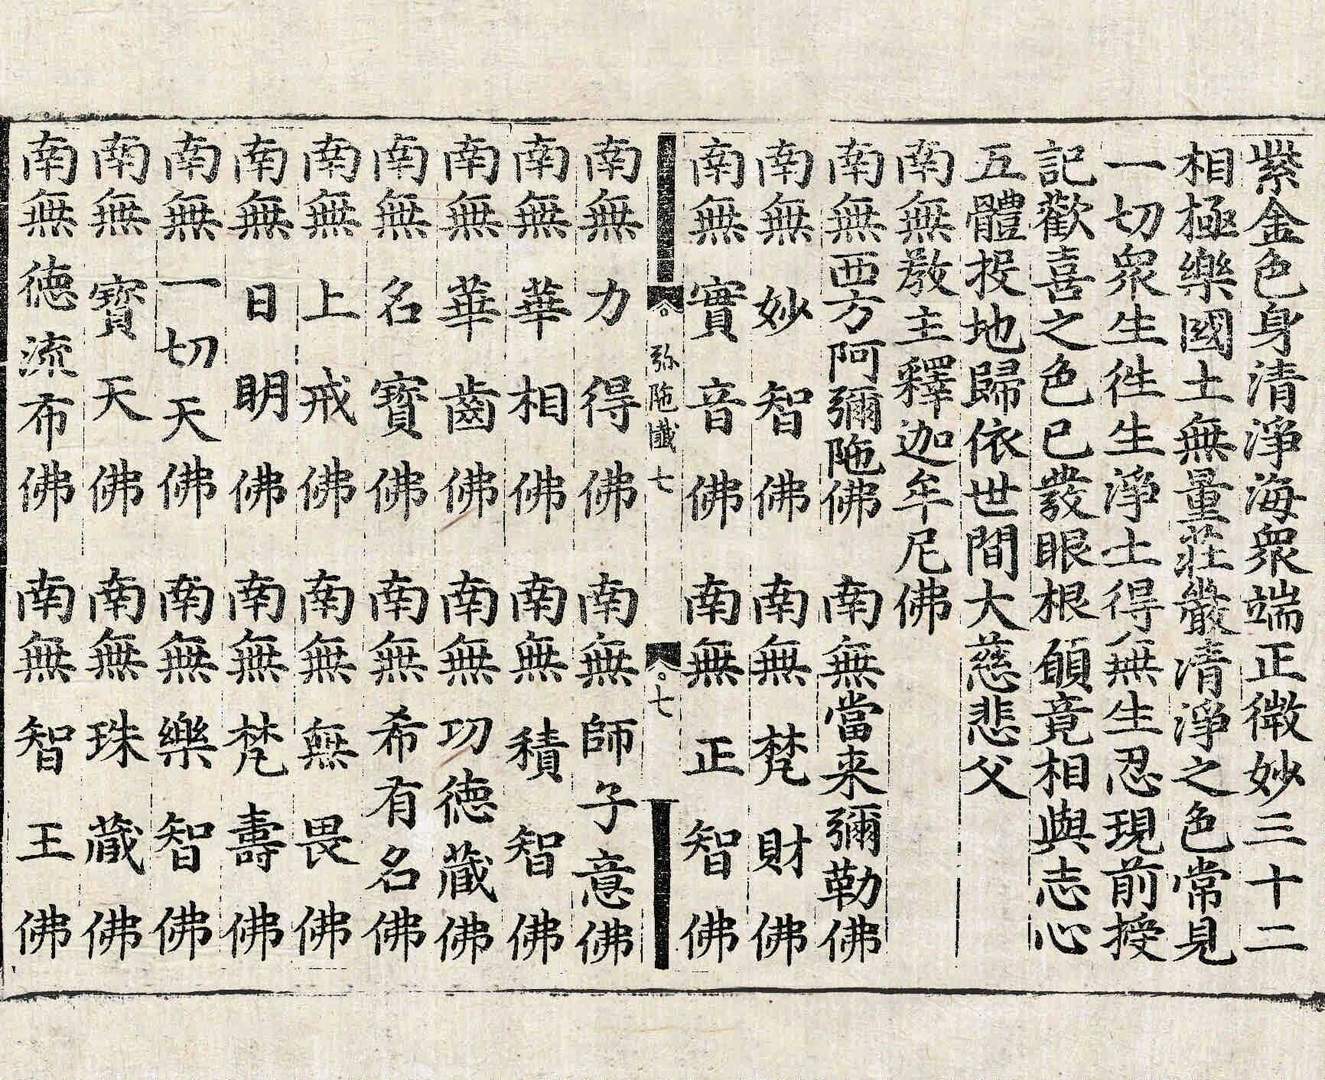 紫金色身清淨海衆端正微妙三十二
相極樂國土無量莊嚴清淨之色常見
一切衆生徃生淨土得無生忍現前授
記歡喜之色已發眼根願竟相與志心
五體投地歸依世間大慈悲父
南無教主釋迦牟尼佛
南無西方阿彌陁佛 南無當来彌勒佛
南無妙智佛 南無梵財佛
南無實音佛 南無正智佛
弥陁懺七 七
南無力得佛 南無師子意佛
南無華相佛 南無積智佛
南無華齒佛 南無功德藏佛
南無名寶佛 南無希有名佛
南無上戒佛 南無無畏佛
南無日明佛 南無梵壽佛
南無一切天佛 南無樂智佛
南無寶天佛 南無珠藏佛
南無德流布佛 南無智王佛